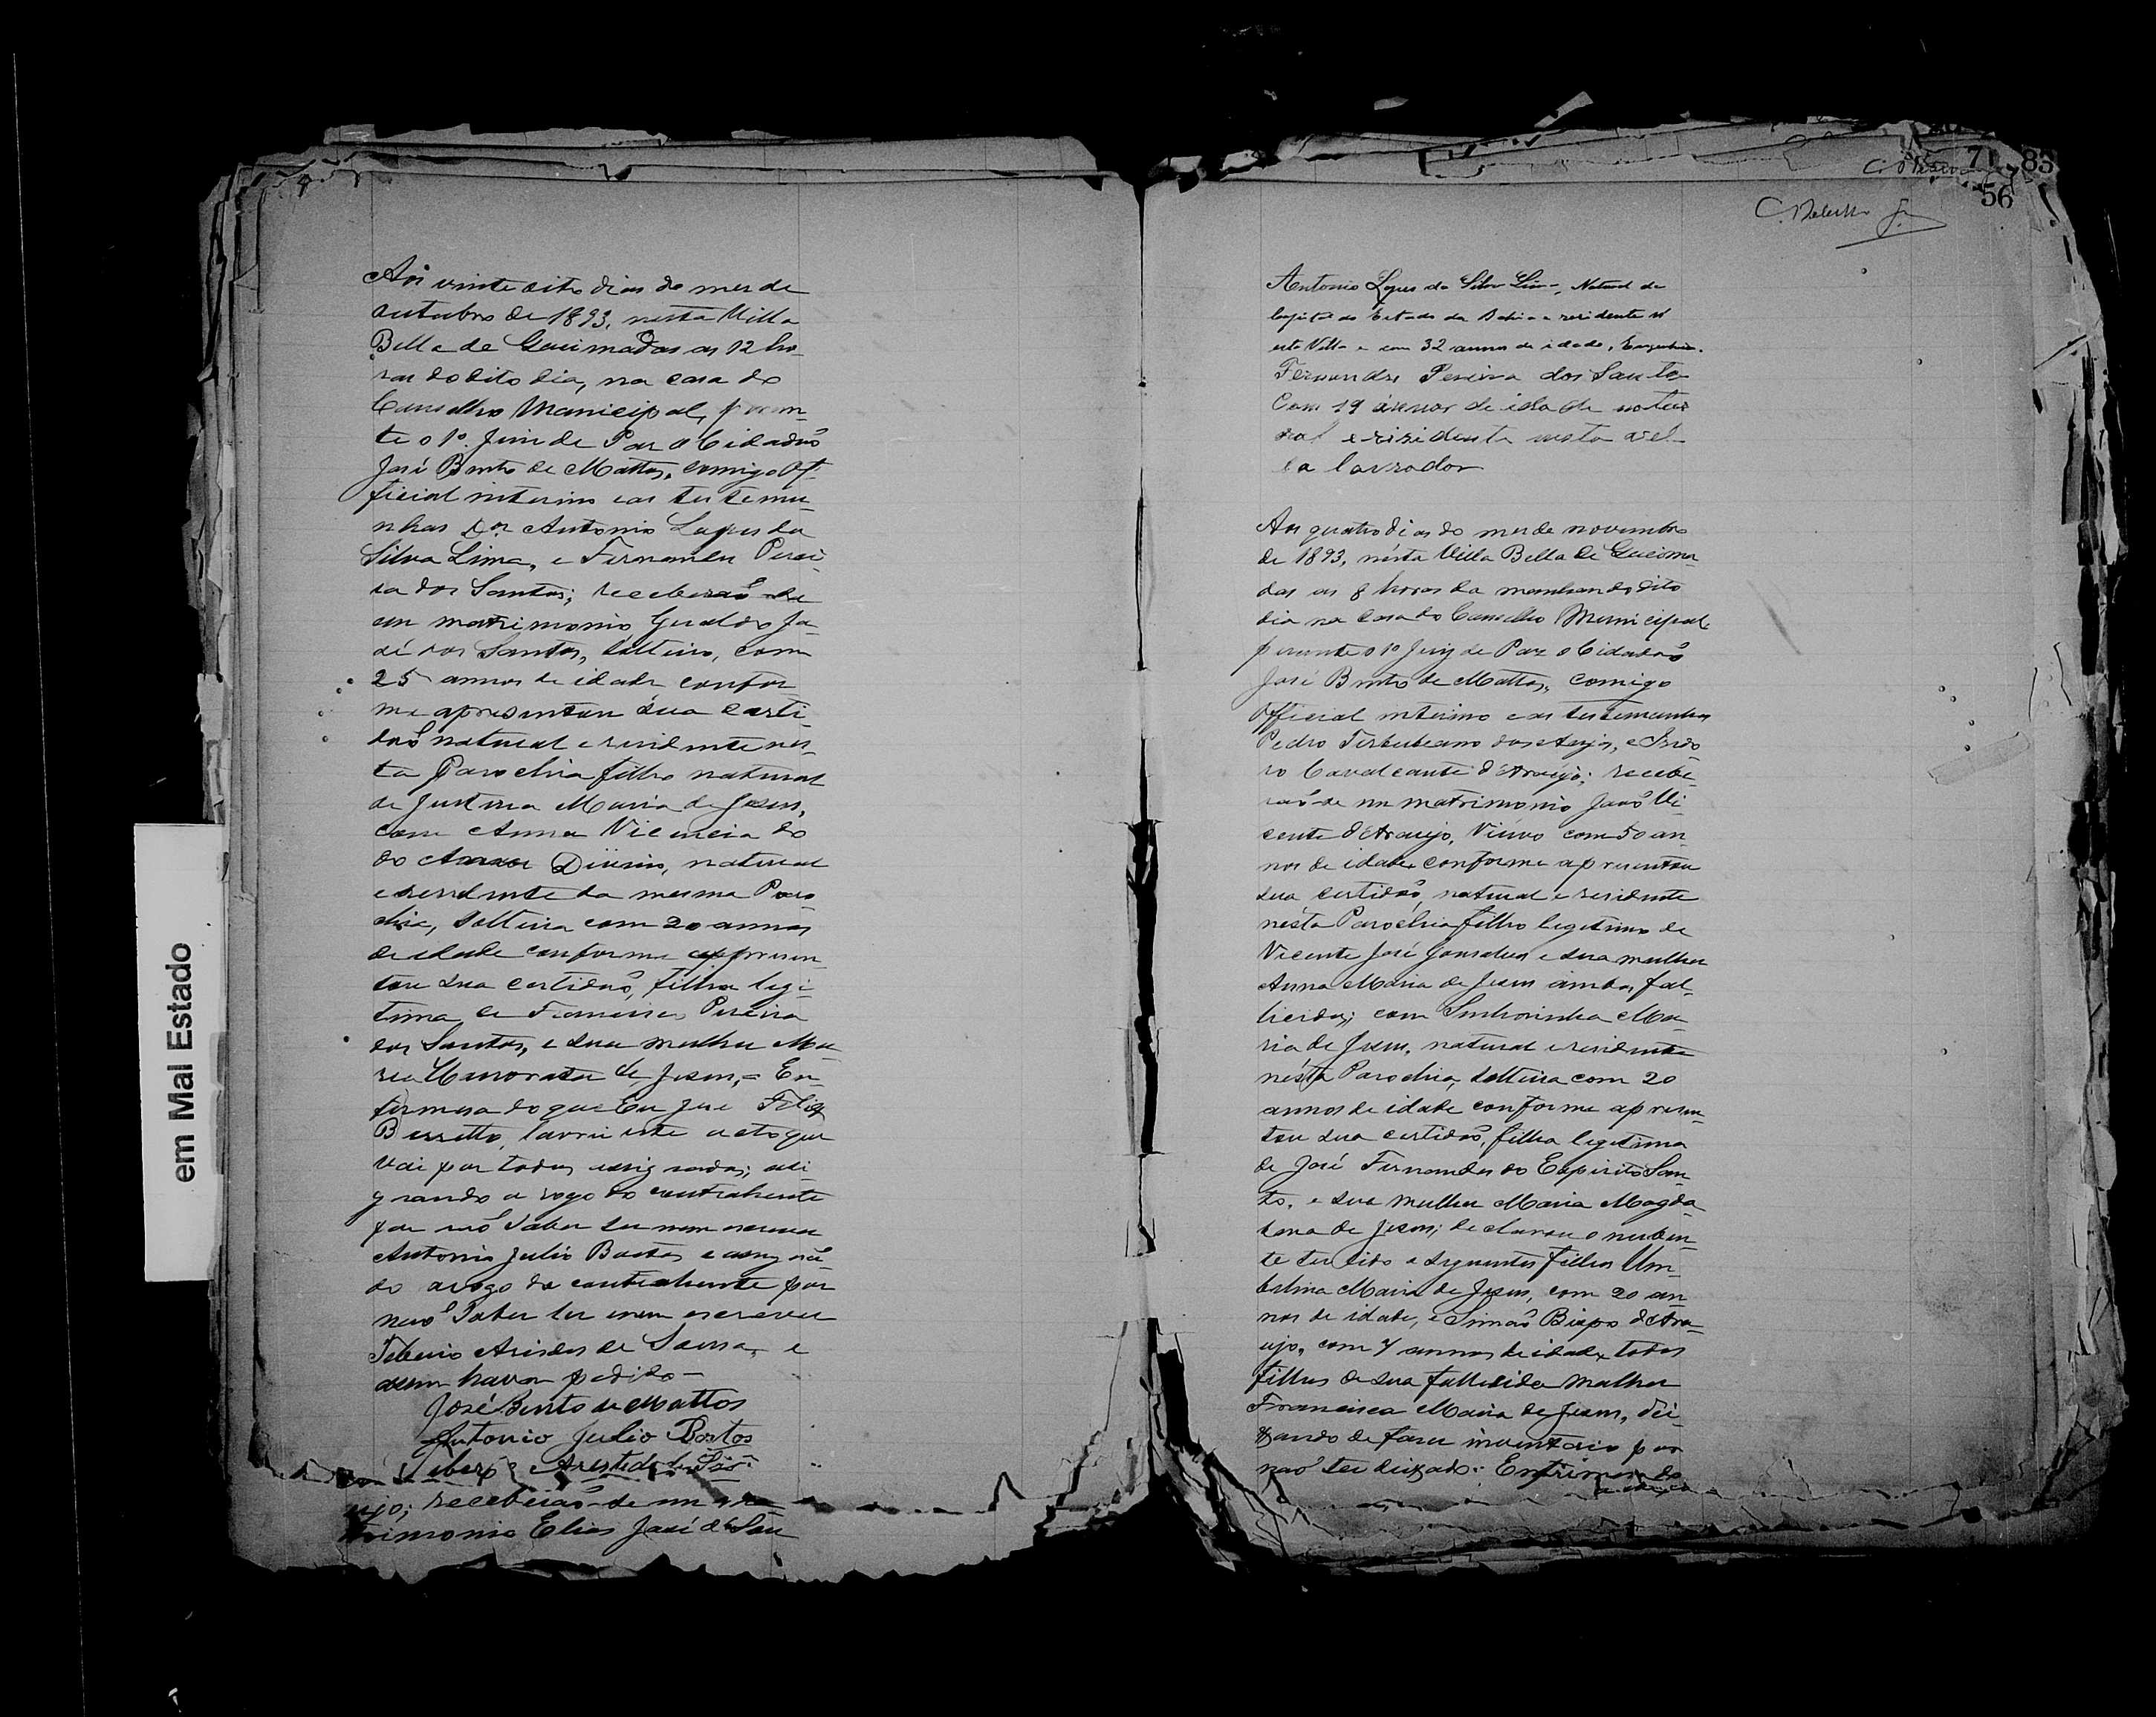 Aos vinte oito dias do mes de
outubro de 1893, nesta Villa
Bella de Queimadas as 12 ho-
ras do dito dia, na casa do
Conselho Municipal, peran-
te o 1º. Juiz de Paz o Cidadão
José Bento de Mattos, comigo Of-
ficial interino e as testemu-
nhas Dor. Antonio Lopes da
Silva Lima, e Fernandes Perei-
ra dos Santos; receberaõ-se
em matrimonio Geraldo Jo-
sé dos Santos, solteiro, com
25 annos de idade confor-
me apresentou sua certi-
daõ natural e residente nes-
ta Parochia filho natural
de Justina Maria de Jesus,
com Anna Vicencia do
do Amor Divino, natural
e residente da mesma Paro
chia, solteira com 20 annos
de idade conforme apresen-
tou sua certidaõ, filha legi-
tima de Francisco Pereira
dos Santos, e sua mulher Ma-
ria Honorata de Jesus,= En-
firmesa do que Eu José Felix
Barretto, lavrei este acto que
vai por todos assignados; assi
gnando a rogo do contrahente
por naõ saber ler nem escrever
Antonio Julio Bastos e assignã-
do arogo da contrahente por
naõ saber ler nem escrever
Tiberio Aristides de Sousa, e
assim haver pedido-
José Bento de Mattos
Antonio Julio Bastos
Tiberio Aristides de
ujo; receberaõ-se em ma
trimonio Elias José de Sou
71 83
56
Antonio Lopes da Silva Lima, Natural da
Capital do Estado da Bahia e residente n'
esta Villa e com 32 annos de idade, Engenheiro.
Fernandes Pereira dos Santos
Com 19 annos de idade natu
ral e residente nesta vil-
la lavrador
Aos quatro dias do mes de novembro
de 1893, nésta Villa Bella de Queima-
das as 8 horas da manhan do dito
dia na Casa do Conselho Municipal,
perante o 1º Juiz de Paz o Cidadaõ
José Bento de Mattos, comigo
Official interino e as testemunhas
Pedro Tertuliano dos Anjos, e Izido
ro Cavalcante d'Araujo; recebe-
raõ-se em matrimonio Joaõ Vi-
cente d'Araujo, Viuvo com 50 an-
nos de idade conforme apresentou
sua certidaõ, natural e residente
nésta Parochia filho legitimo de
Vicente José Gonsalves e sua mulher
Anna Maria de Jesus ambos fal-
licidos; com Sinhorinha Ma-
ria de Jesus, natural e residente
nésta Parochia, solteira com 20
annos de idade conforme apresen-
tou sua certidaõ, filha legitima
de José Fernandes do Espirito San-
to, e sua mulher Maria Magda-
lena de Jesus; declarou o nuben-
te ter tido e seguentes filhos Um-
belina Maria de Jesus, com 20 an-
nos de idade, e Simaõ Bispo d'Ara-
ujo, com 4 annos de idade, todos
filhos de sua fallecida mulher
Francisca Maria de Jesus, dei-
xando de faser inventario por
naõ ter deixado: Enfirmesa do
em Mal Estado